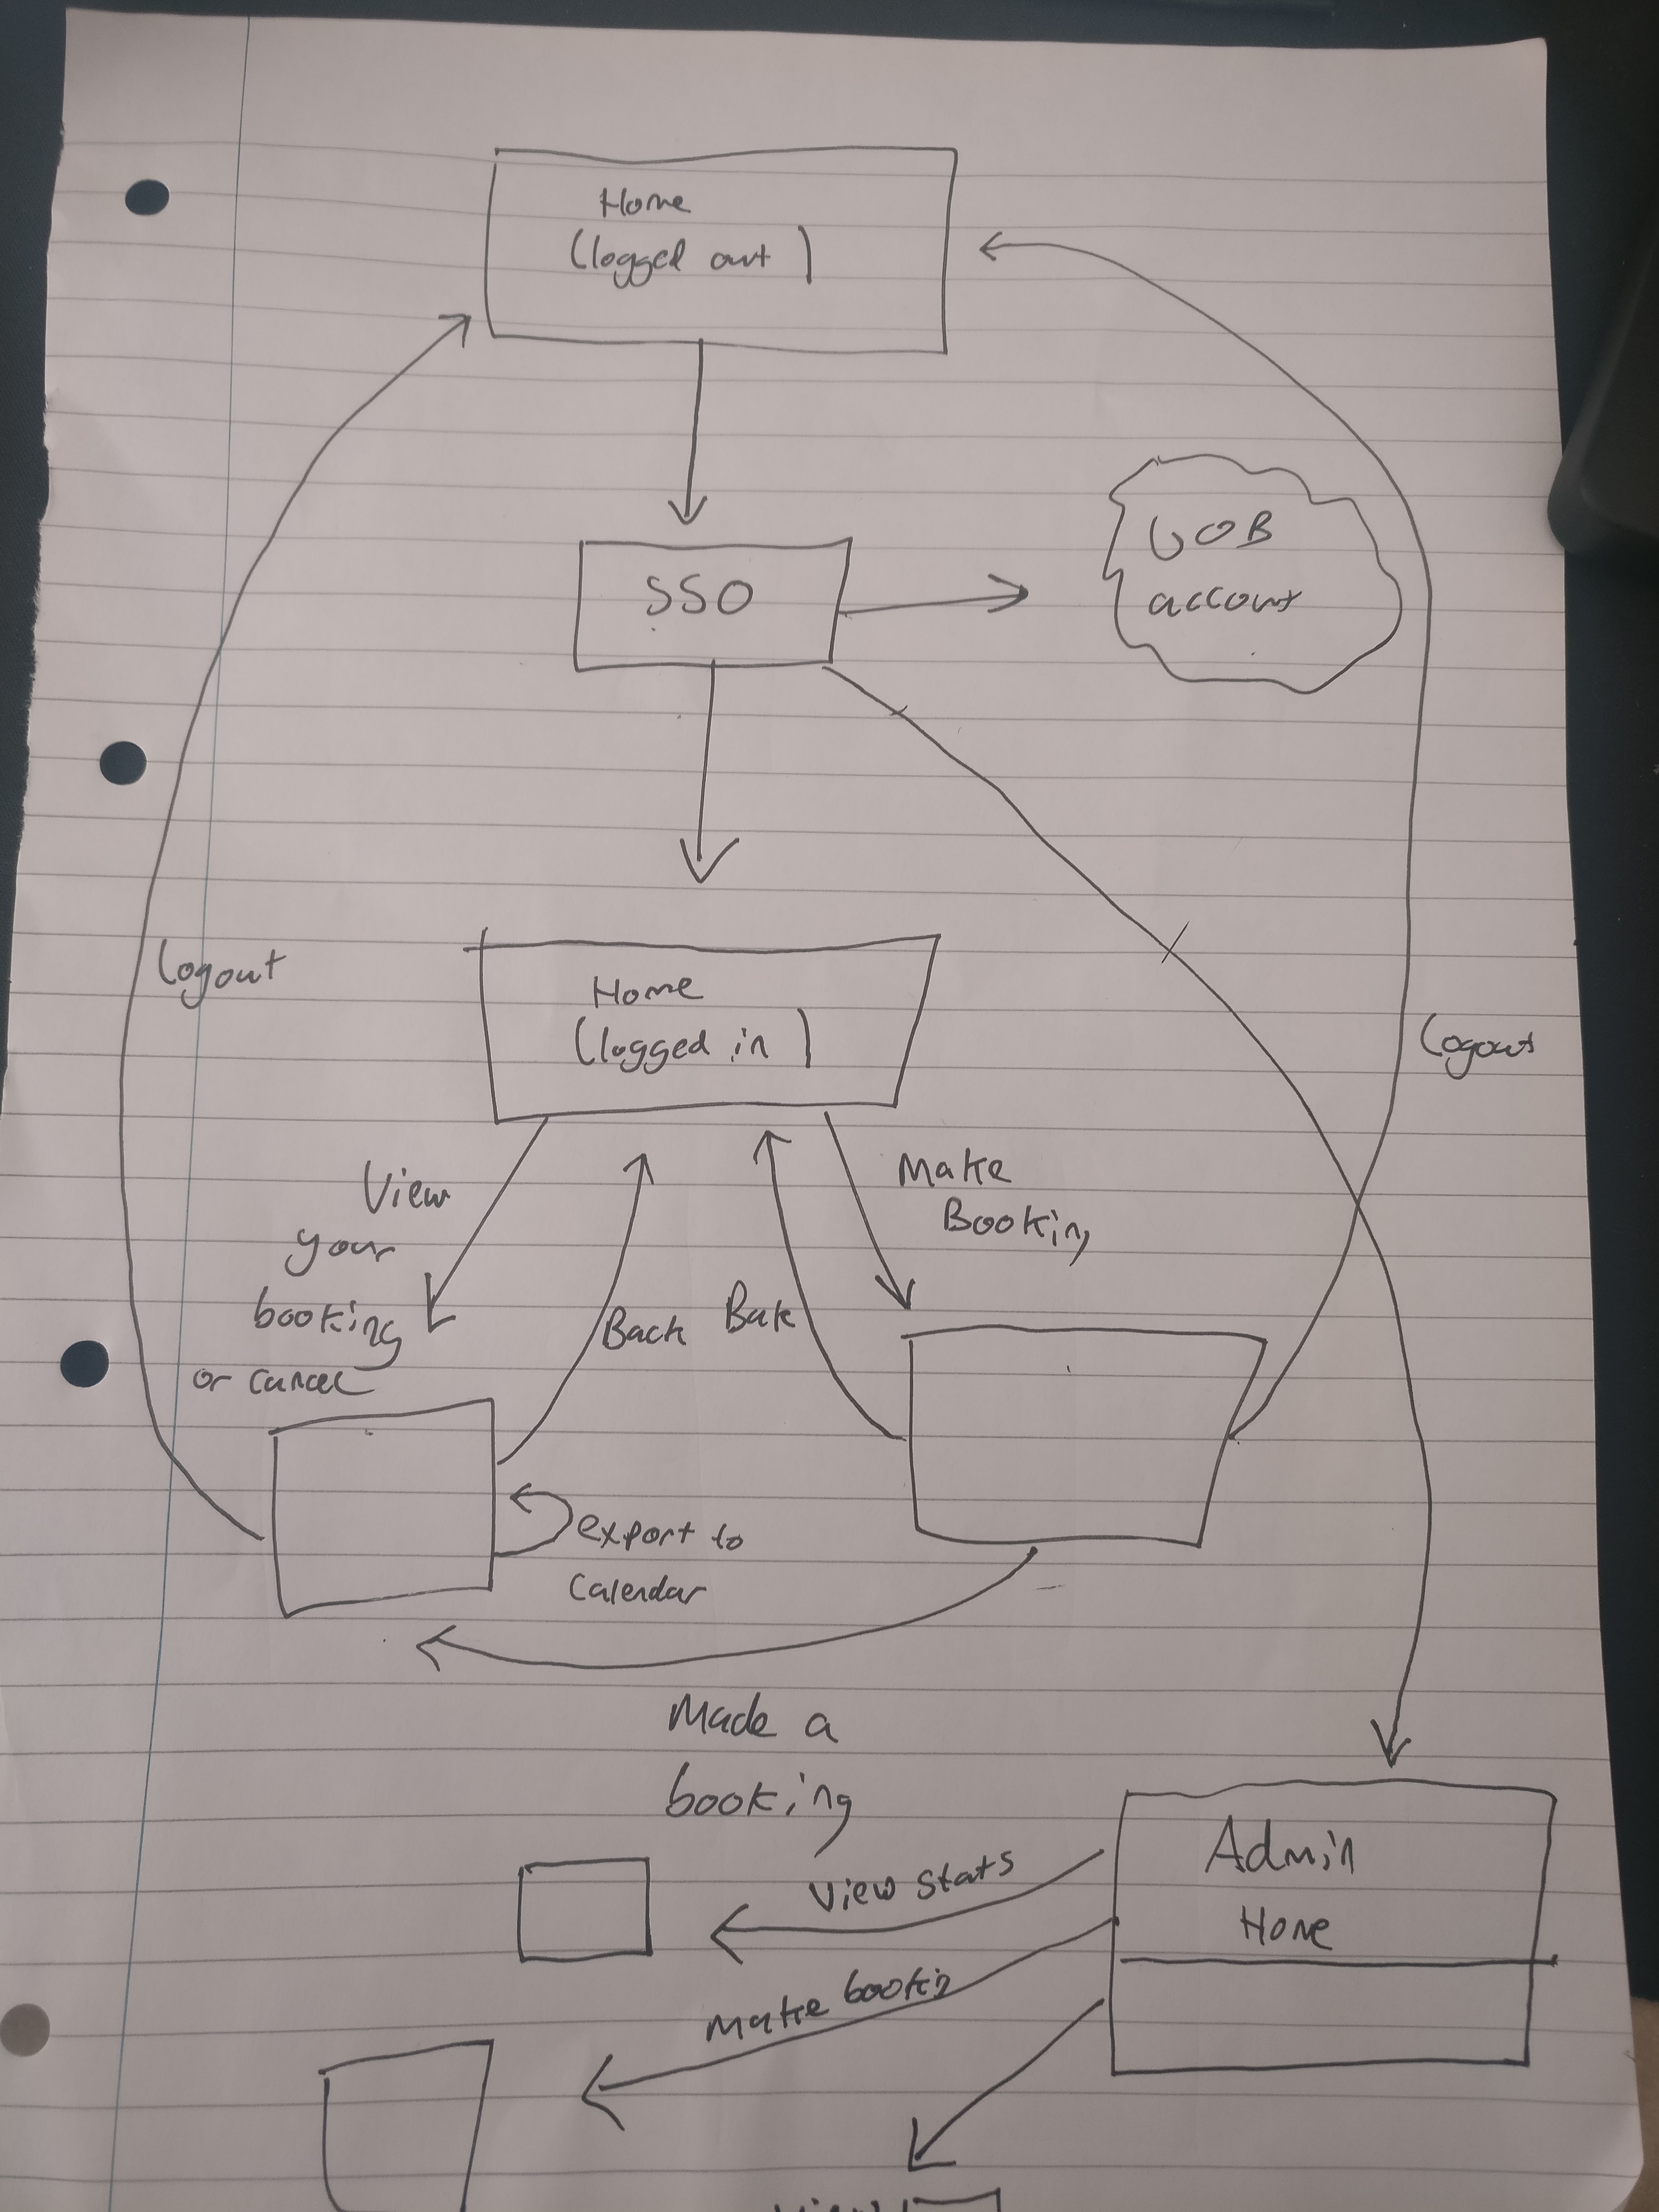 Home
(logged out)
SSO
UOB
account
Logout
Home
(logged in)
Logout
View
your
booking
or cancel
Back
Bak
Make
Booking
export to
Calendar
Made a
booking
Admin
Home
View stats
Make bookin